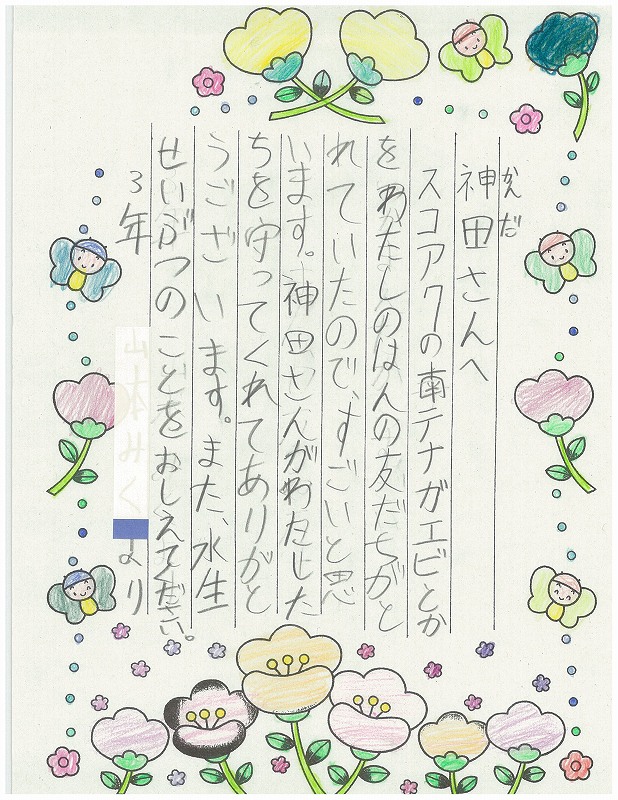 かんだ
神田さんへ
スコアクの南テナガエビとか
をわたしのはんの友だちがと
れていたので、すごいと思
います。神田さんがわたした
ちを守ってくれてありがと
うございます。また、水生
せいぶつのことをおしえてください。
3年 より